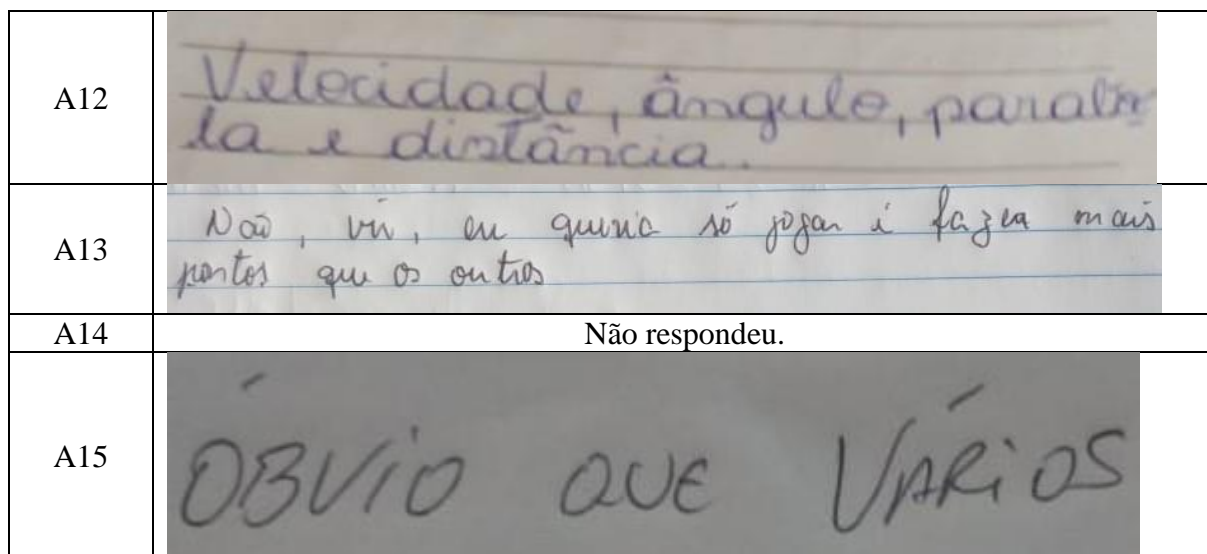 A12
Velocidade, ângulo, parabo
la e distância.
A13
Não, vir, eu queria só jogar i fazer mais
pontos que os outros
A14
Não respondeu.
A15
ÓBVIO QUE VÁRIOS